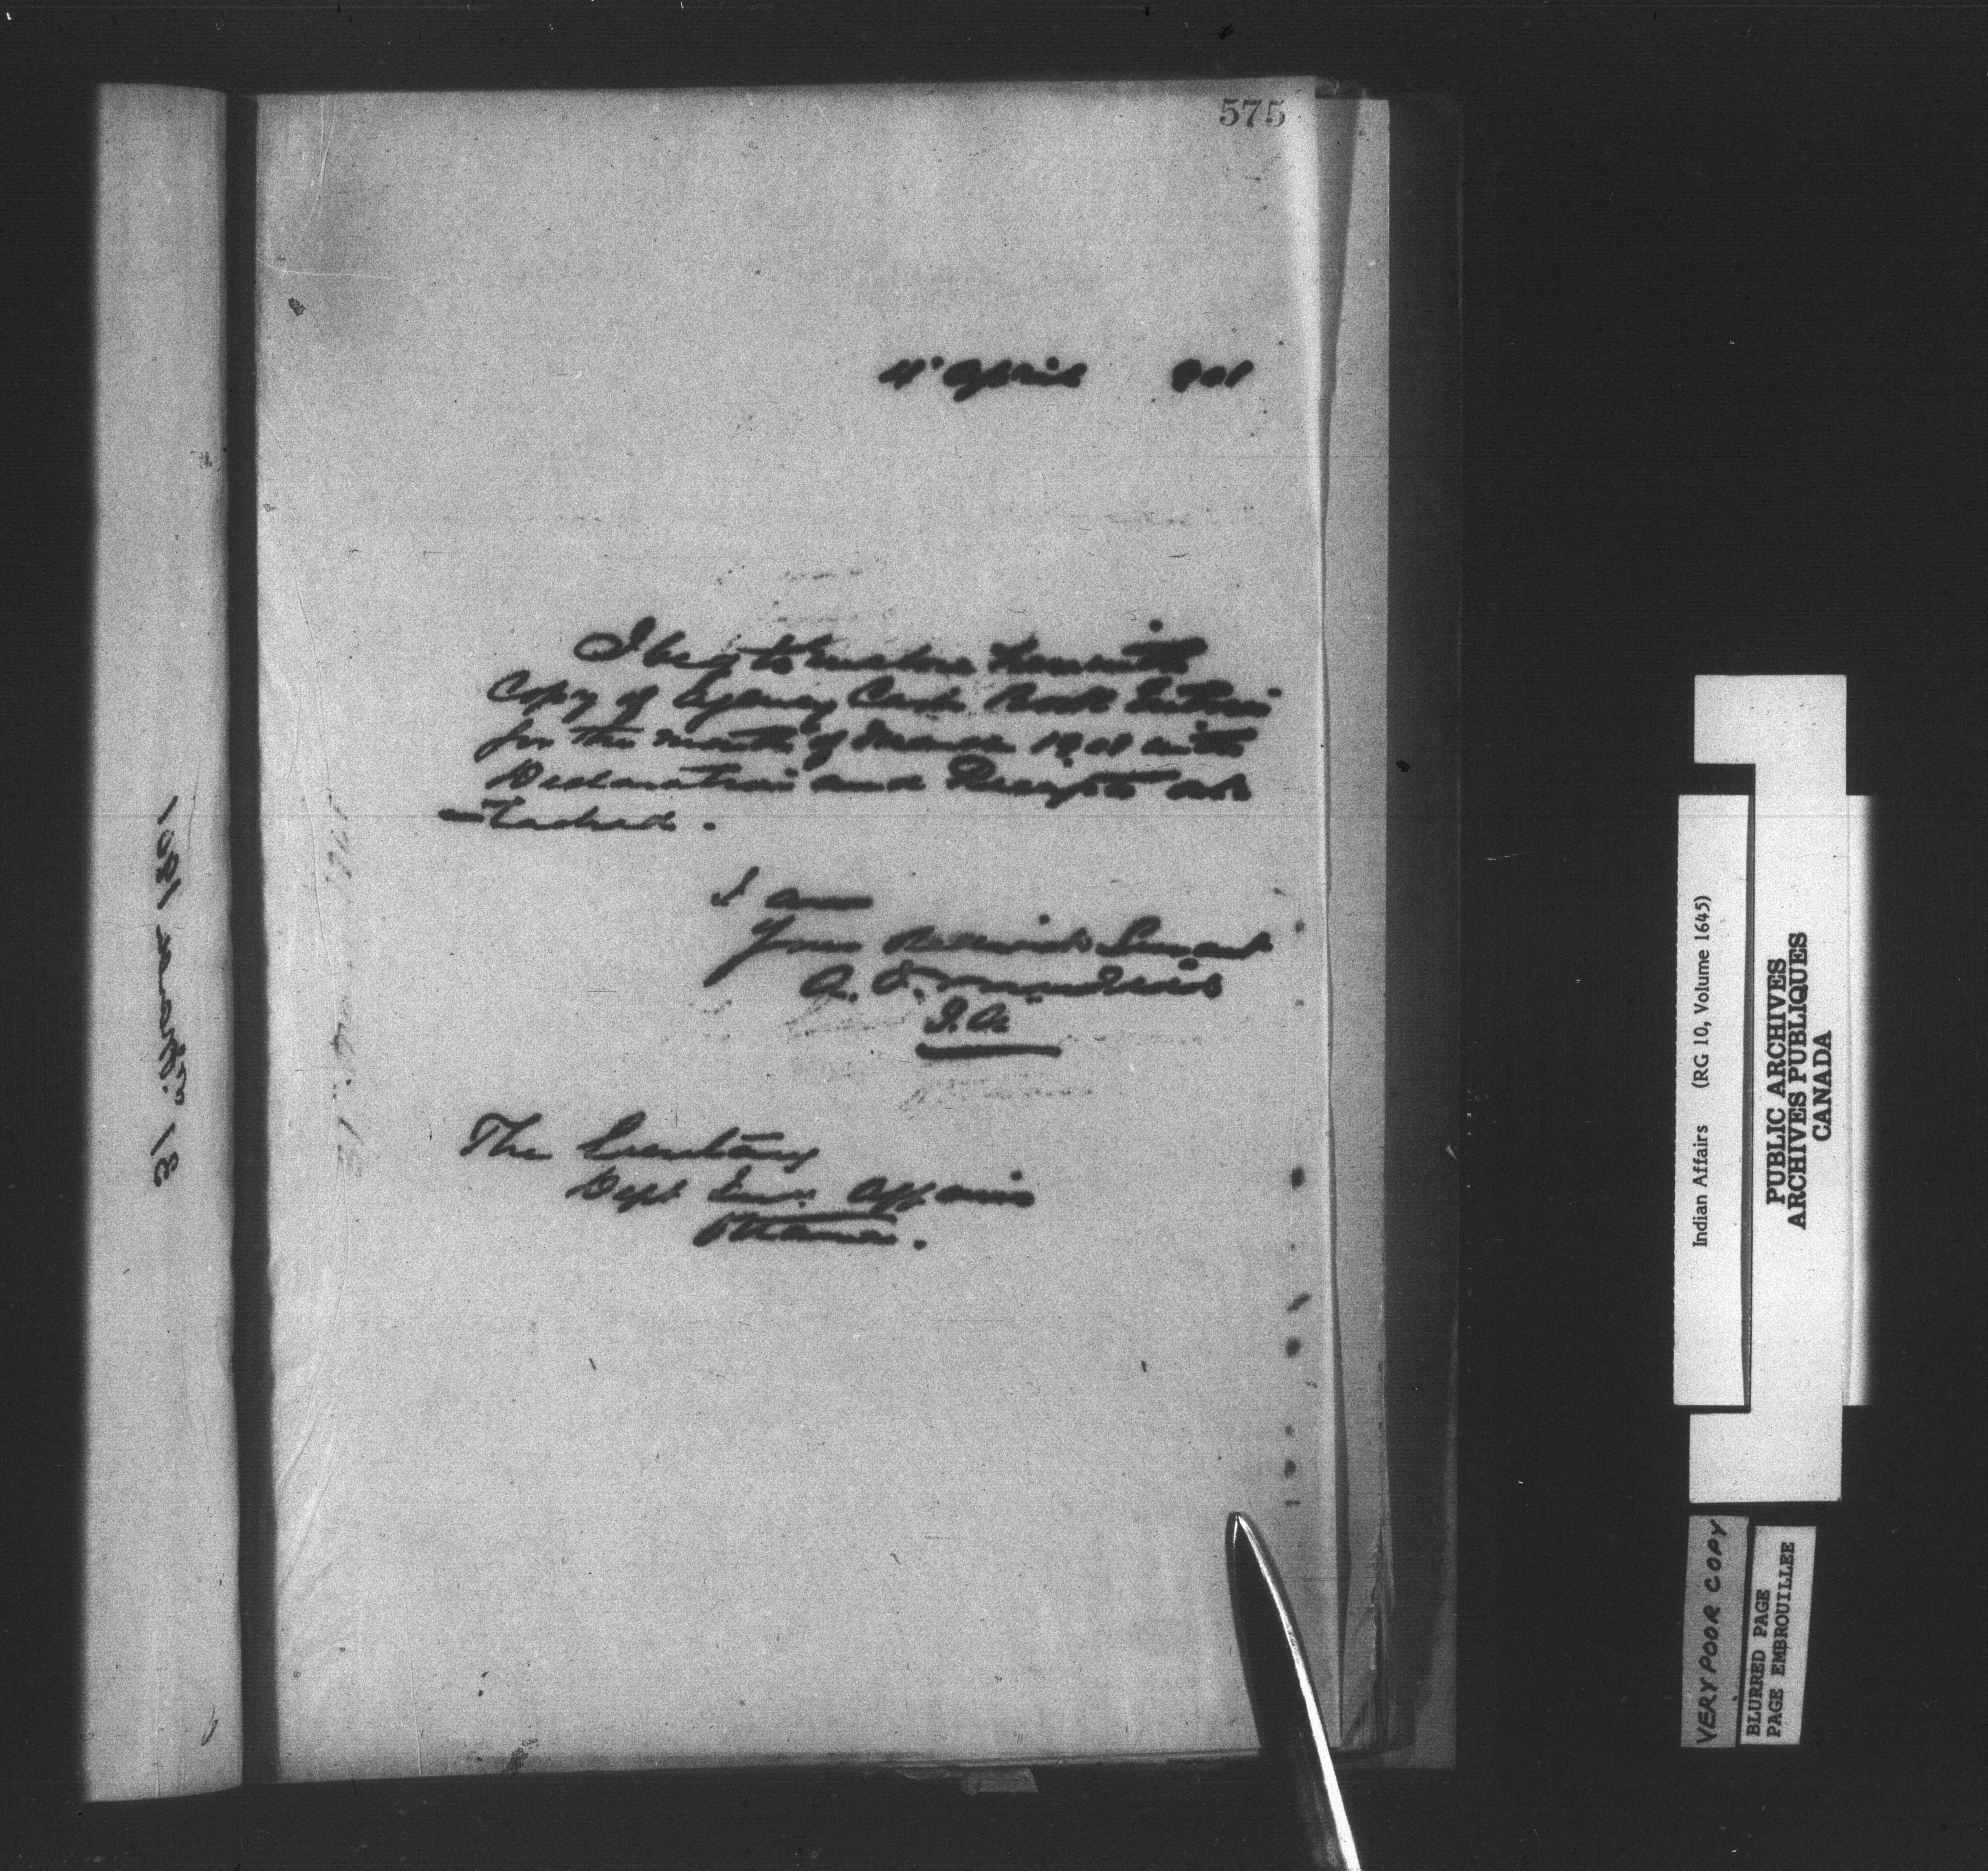 575
4" April 901
I beg to enclose herewith
Copy of Agency Cash Book Entries
for the month of March 1901 with
Declaration and Receipts at-
-tached.
I am
Your Obedient Servant
I.A.
The Secretary
Dept Ind. Affairs
Ottawa.
31
1901
Indian Affairs (RG 10, Volume 1645)
PUBLIC ARCHIVES
ARCHIVES PUBLIQUES
CANADA
VERY POOR COPY
BLURRED PAGE
PAGE EMBROUILLEE